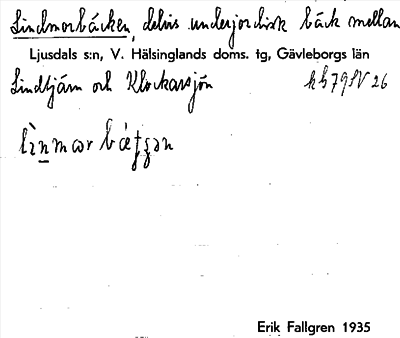 Lindmorbäcken, delvis underjordisk bäck mellan
Ljusdals s:n, V. Hälsinglands doms. tg, Gävleborgs län
Lindtjärn och Klockarsjön
Erik Fallgren 1935